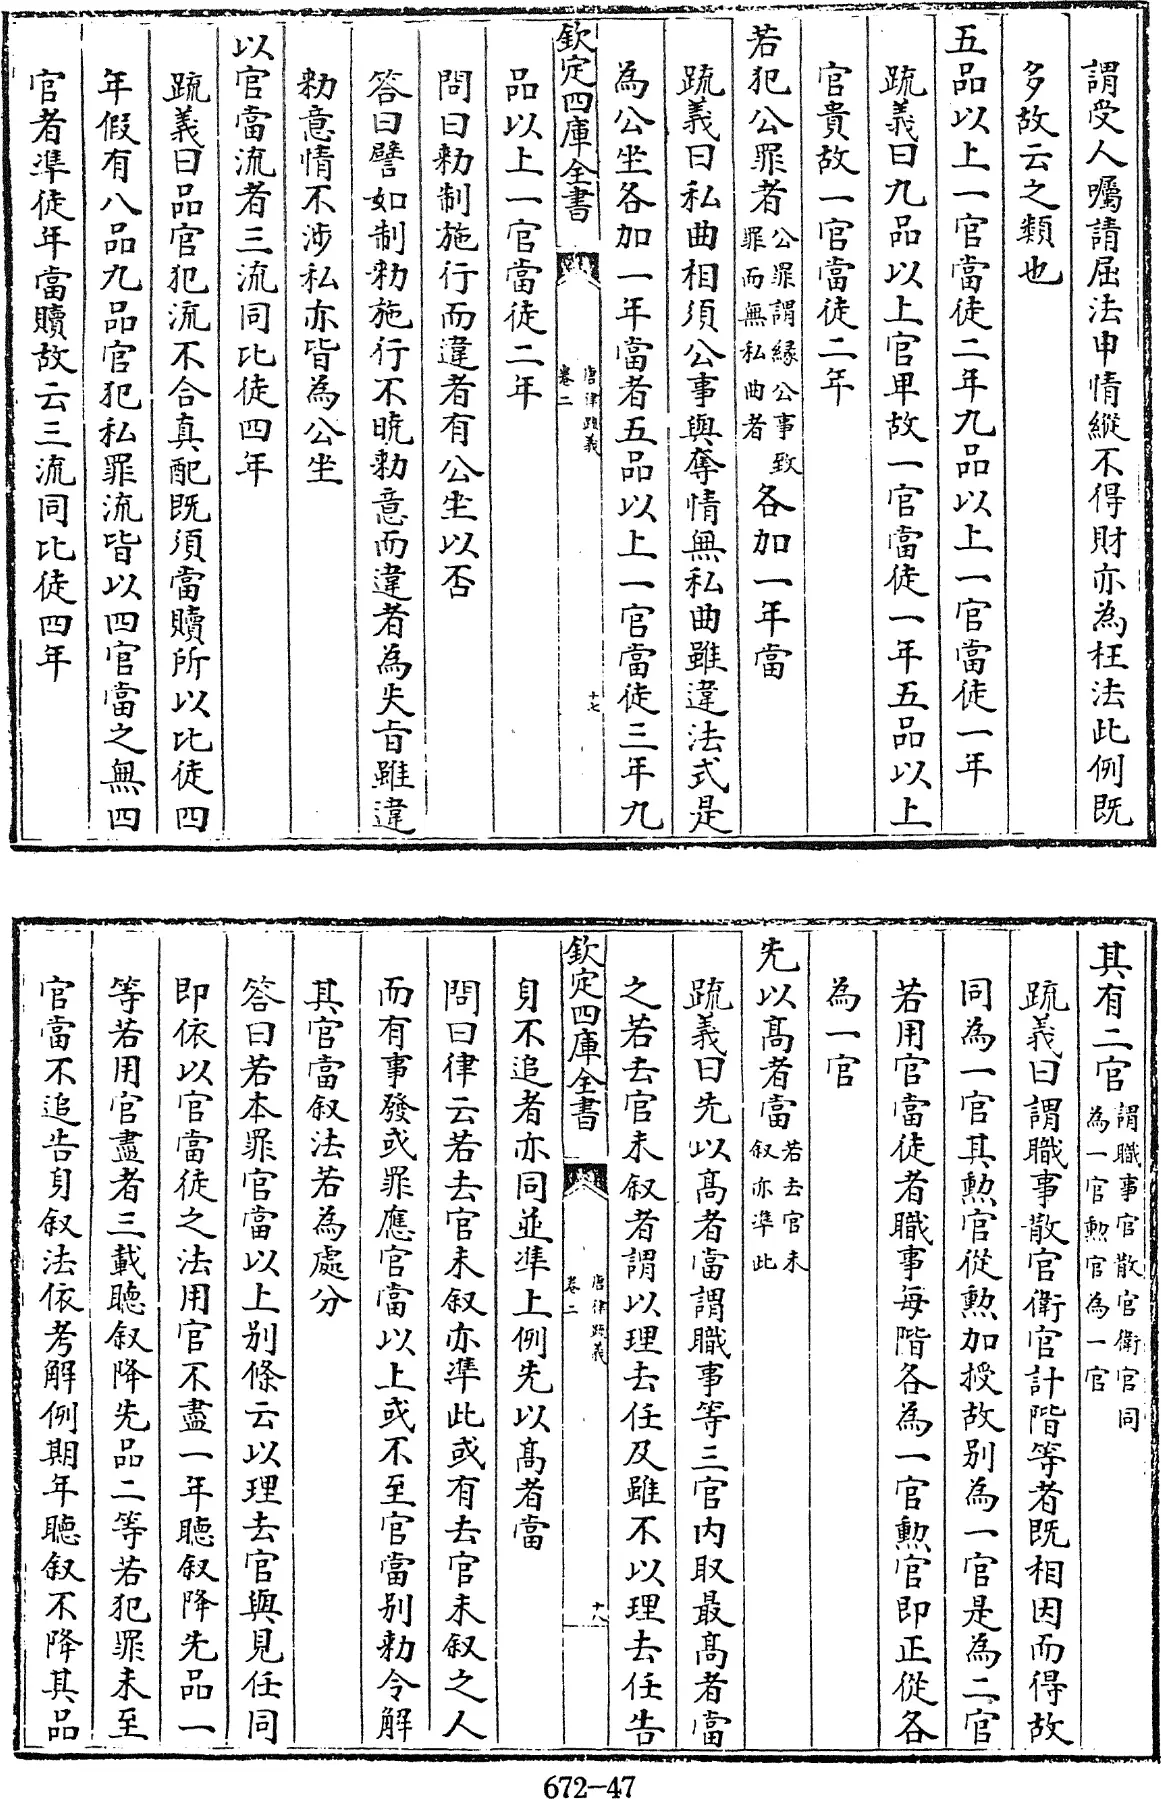 謂受人囑請屈法申情縱不得財亦為枉法此例既
多故云之類也
五品以上一官當徒二年九品以上一官當徒一年
疏義曰九品以上官卑故一官當徒一年五品以上
官貴故一官當徒二年
若犯公罪者公罪謂緣公事致罪而無私曲者各加一年當
疏義曰私曲相須公事與奪情無私曲雖違法式是
為公坐各加一年當者五品以上一官當徒三年九
欽定四庫全書 唐律疏義卷二 十七
品以上一官當徒二年
問曰勑制施行而違者有公坐以否
答曰譬如制勑施行不曉勑意而違者為失旨雖違
勑意情不涉私亦皆為公坐
以官當流者三流同比徒四年
疏義曰品官犯流不合真配既須當贖所以比徒四
年假有八品九品官犯私罪流皆以四官當之無四
官者準徒年當贖故云三流同比徒四年
其有二官謂職事官散官衛官同為一官勲官為一官
疏義曰謂職事散官衛官計階等者既相因而得故
同為一官其勲官從勲加授故别為一官是為二官
若用官當徒者職事每階各為一官勲官即正從各
為一官
先以髙者當若去官未叙亦準此
疏義曰先以髙者當謂職事等三官内取最髙者當
之若去官未叙者謂以理去任及雖不以理去任告
欽定四庫全書 唐律疏義卷二 十八
身不追者亦同並準上例先以髙者當
問曰律云若去官未叙亦準此或有去官未叙之人
而有事發或罪應官當以上或不至官當别勑令解
其官當叙法若為處分
答曰若本罪官當以上别條云以理去官與見任同
即依以官當徒之法用官不盡一年聽叙降先品一
等若用官盡者三載聽叙降先品二等若犯罪未至
官當不追告身叙法依考解例期年聽叙不降其品
672-47